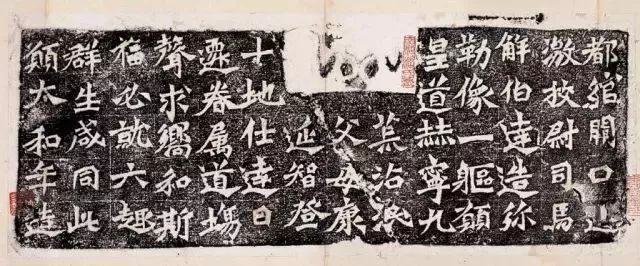 都綰關口遊
激校尉司馬
解伯達造弥
勒像一軀願
皇道赫寧九
荒沾澤
父母康
延智登
十地仕達日
遷眷属道場
聲求嚮和斯
福必就六趣
群生咸同此
願太和年造